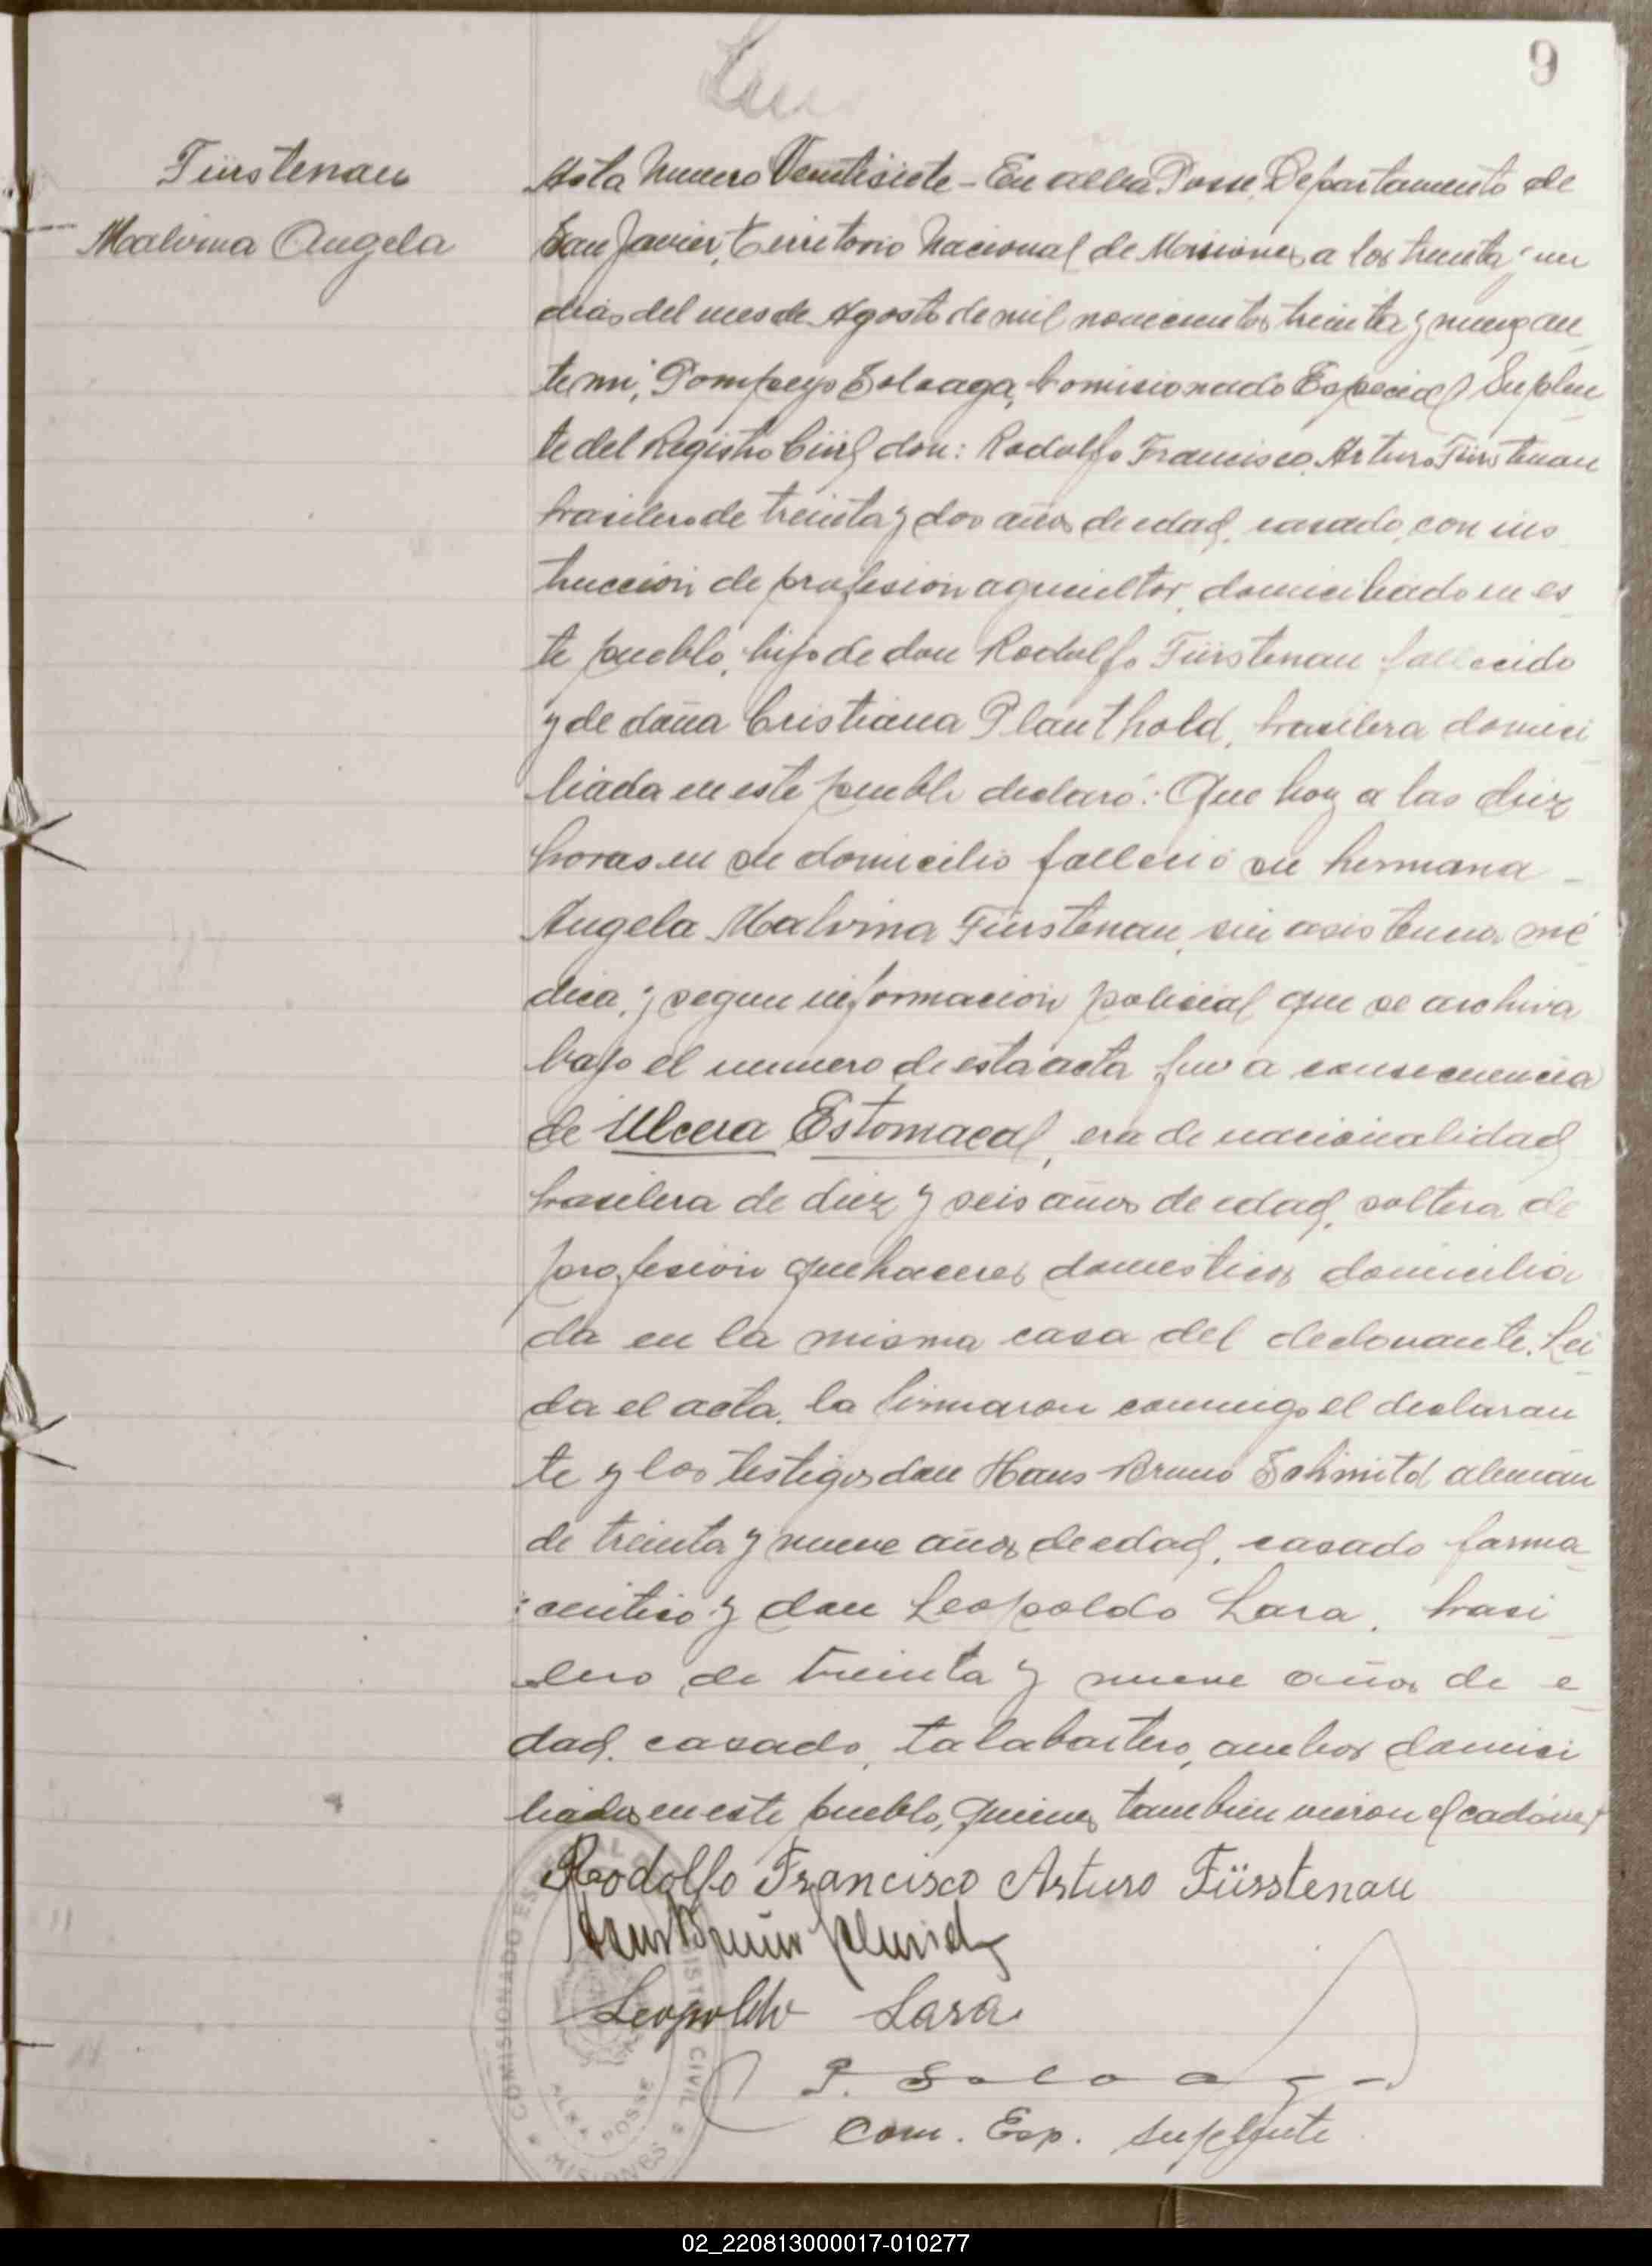 9
Fürstenau
Malvina Angela
Acta Numero Ventisiete - En Alba Posse, Departamento de
San Javier, Territorio Nacional de Misiones, a los treinta y un
dias del mes de Agosto de mil novecientos treinta y nueve, an
te mi, Pompeyo Soloaga, Comisionado Especial Suplen
te del Registro Civil, don: Rodolfo Francisco Arturo Fürstenau
brasilero de treinta y dos años de edad, casado, con ins
trucción de profesión agricultor, domiciliado en es
te pueblo, hijo de don Rodolfo Fürstenau fallecido
y de doña Cristiana Planthold, brasilera domici
liada en este pueblo declaró: Que hoy a las diez
horas en su domicilio falleció su hermana
Angela Malvina Fürstenau, sin asistencia mé
dica, y segun información policial que se archiva
bajo el numero de esta acta fue a consecuencia
de Ulcera Estomacal, era de nacionalidad
brasilera de diez y seis años de edad, soltera de
profesión quehaceres domesticos domicilia
da en la misma casa del declarante. Lei
da el acta, la firmaron conmigo el declaran
te y los testigos don Hans Bruno Schmitd alemán
de treinta y nueve años de edad, casado farma
ceutico y don Leopoldo Lara, brasi
lero de treinta y nueve años de e
dad, casado, talabartero, ambos domici
liados en este pueblo, quienes tambien vieron el cadáver
Rodolfo Francisco Arturo Fürstenau
Hans Bruno Schmid
Leopoldo Lara
P. Soloaga
Com. Esp. Suplente
COMISIONADO ES
CIVIL
ALBA POSSE
MISIONES
02_220813000017-010277